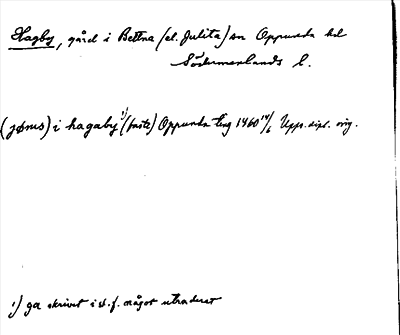 Hagby, gård i Bettna (el. Julita) sn Oppunda hd
Södermanlands l.
(jøns) i hagaby¹⁾ (faste) Oppunda ting 1460 14/6 Upps. dipl. orig.
¹⁾ ga skrivet i st. f. något utraderat